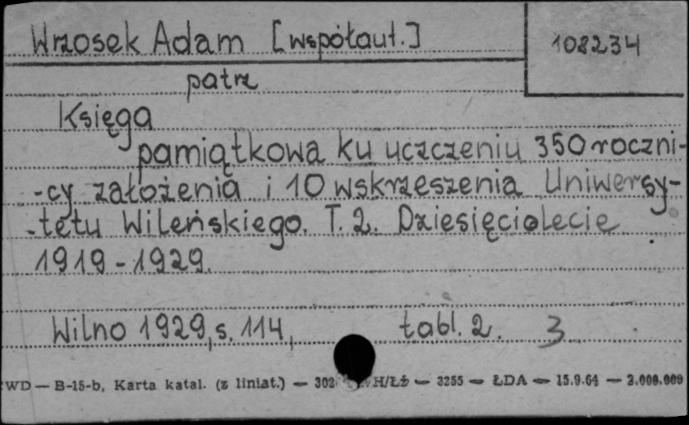 Wrzosek Adam [współaut.] 108234
patrz
Księga
pamiątkowa ku uczczeniu 350 roczni-
-cy założenia i 10 wskrzeszenia Uniwersy-
-tetu Wileńskiego. T. 2. Dziesięciolecie
1919-1929.
Wilno 1929, s. 114, tabl. 2. 3
WD — B-15-b, Karta katal. (z liniat.) — 302 H/Łż — 3255 — ŁDA — 15.9.64 — 2.000.000